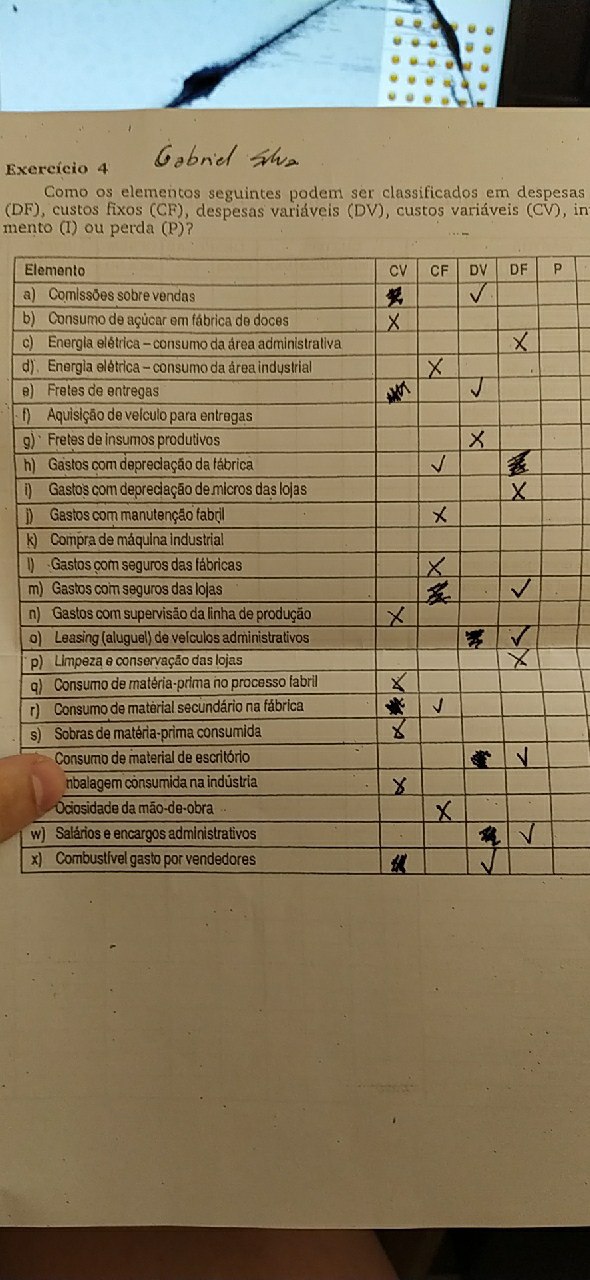 Gabriel Silva
Exercício 4
Como os elementos seguintes podem ser classificados em despesas
(DF), custos fixos (CF), despesas variáveis (DV), custos variáveis (CV),
mento (I) ou perda (P)?
Elemento CV CF DV DF P
a) Comissões sobre vendas ✓
b) Consumo de açúcar em fábrica de doces X
c) Energia elétrica – consumo da área administrativa X
d) Energia elétrica – consumo da área industrial X
e) Fretes de entregas ✓
f) Aquisição de veículo para entregas
g) Fretes de insumos produtivos X
h) Gastos com depreciação da fábrica ✓
i) Gastos com depreciação de micros das lojas X
j) Gastos com manutenção fabril X
k) Compra de máquina industrial
l) Gastos com seguros das fábricas X
m) Gastos com seguros das lojas ✓
n) Gastos com supervisão da linha de produção X
o) Leasing (aluguel) de veículos administrativos ✓
p) Limpeza e conservação das lojas X
q) Consumo de matéria-prima no processo fabril X
r) Consumo de material secundário na fábrica ✓
s) Sobras de matéria-prima consumida X
Consumo de material de escritório ✓
mbalagem consumida na indústria X
Ociosidade da mão-de-obra X
w) Salários e encargos administrativos ✓
x) Combustível gasto por vendedores ✓